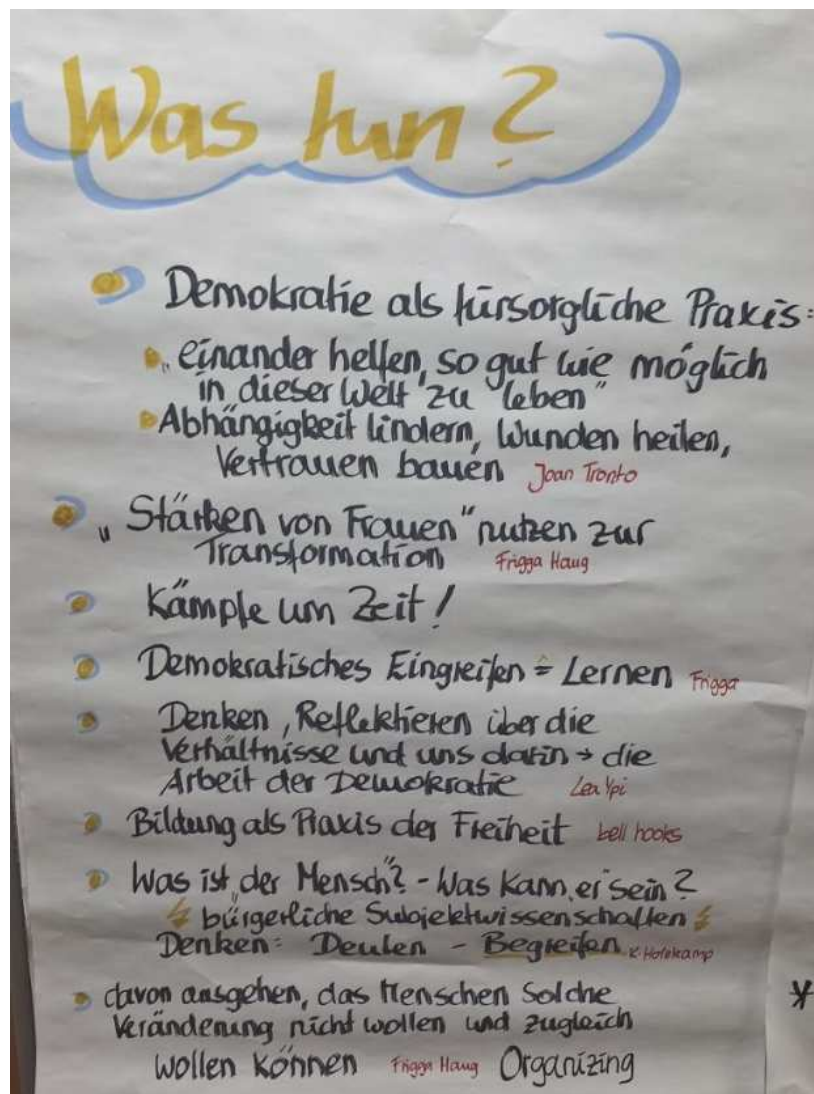 Was tun?
Demokratie als fürsorgliche Praxis:
„einander helfen, so gut wie möglich
in dieser Welt zu leben"
Abhängigkeit lindern, Wunden heilen,
Vertrauen bauen Joan Tronto
„Stärken von Frauen" nutzen zur
Transformation Frigga Haug
Kämpfe um Zeit!
Demokratisches Eingreifen = Lernen Frigga
Denken, Reflektieren über die
Verhältnisse und uns darin → die
Arbeit der Demokratie Lea Ypi
Bildung als Praxis der Freiheit bell hooks
Was ist „der Mensch"? - Was kann „er" sein?
bürgerliche Subjektwissenschaften
Denken: Deuten - Begreifen K. Holzkamp
davon ausgehen, das Menschen solche
Veränderung nicht wollen und zugleich
wollen können Frigga Haug Organizing
*